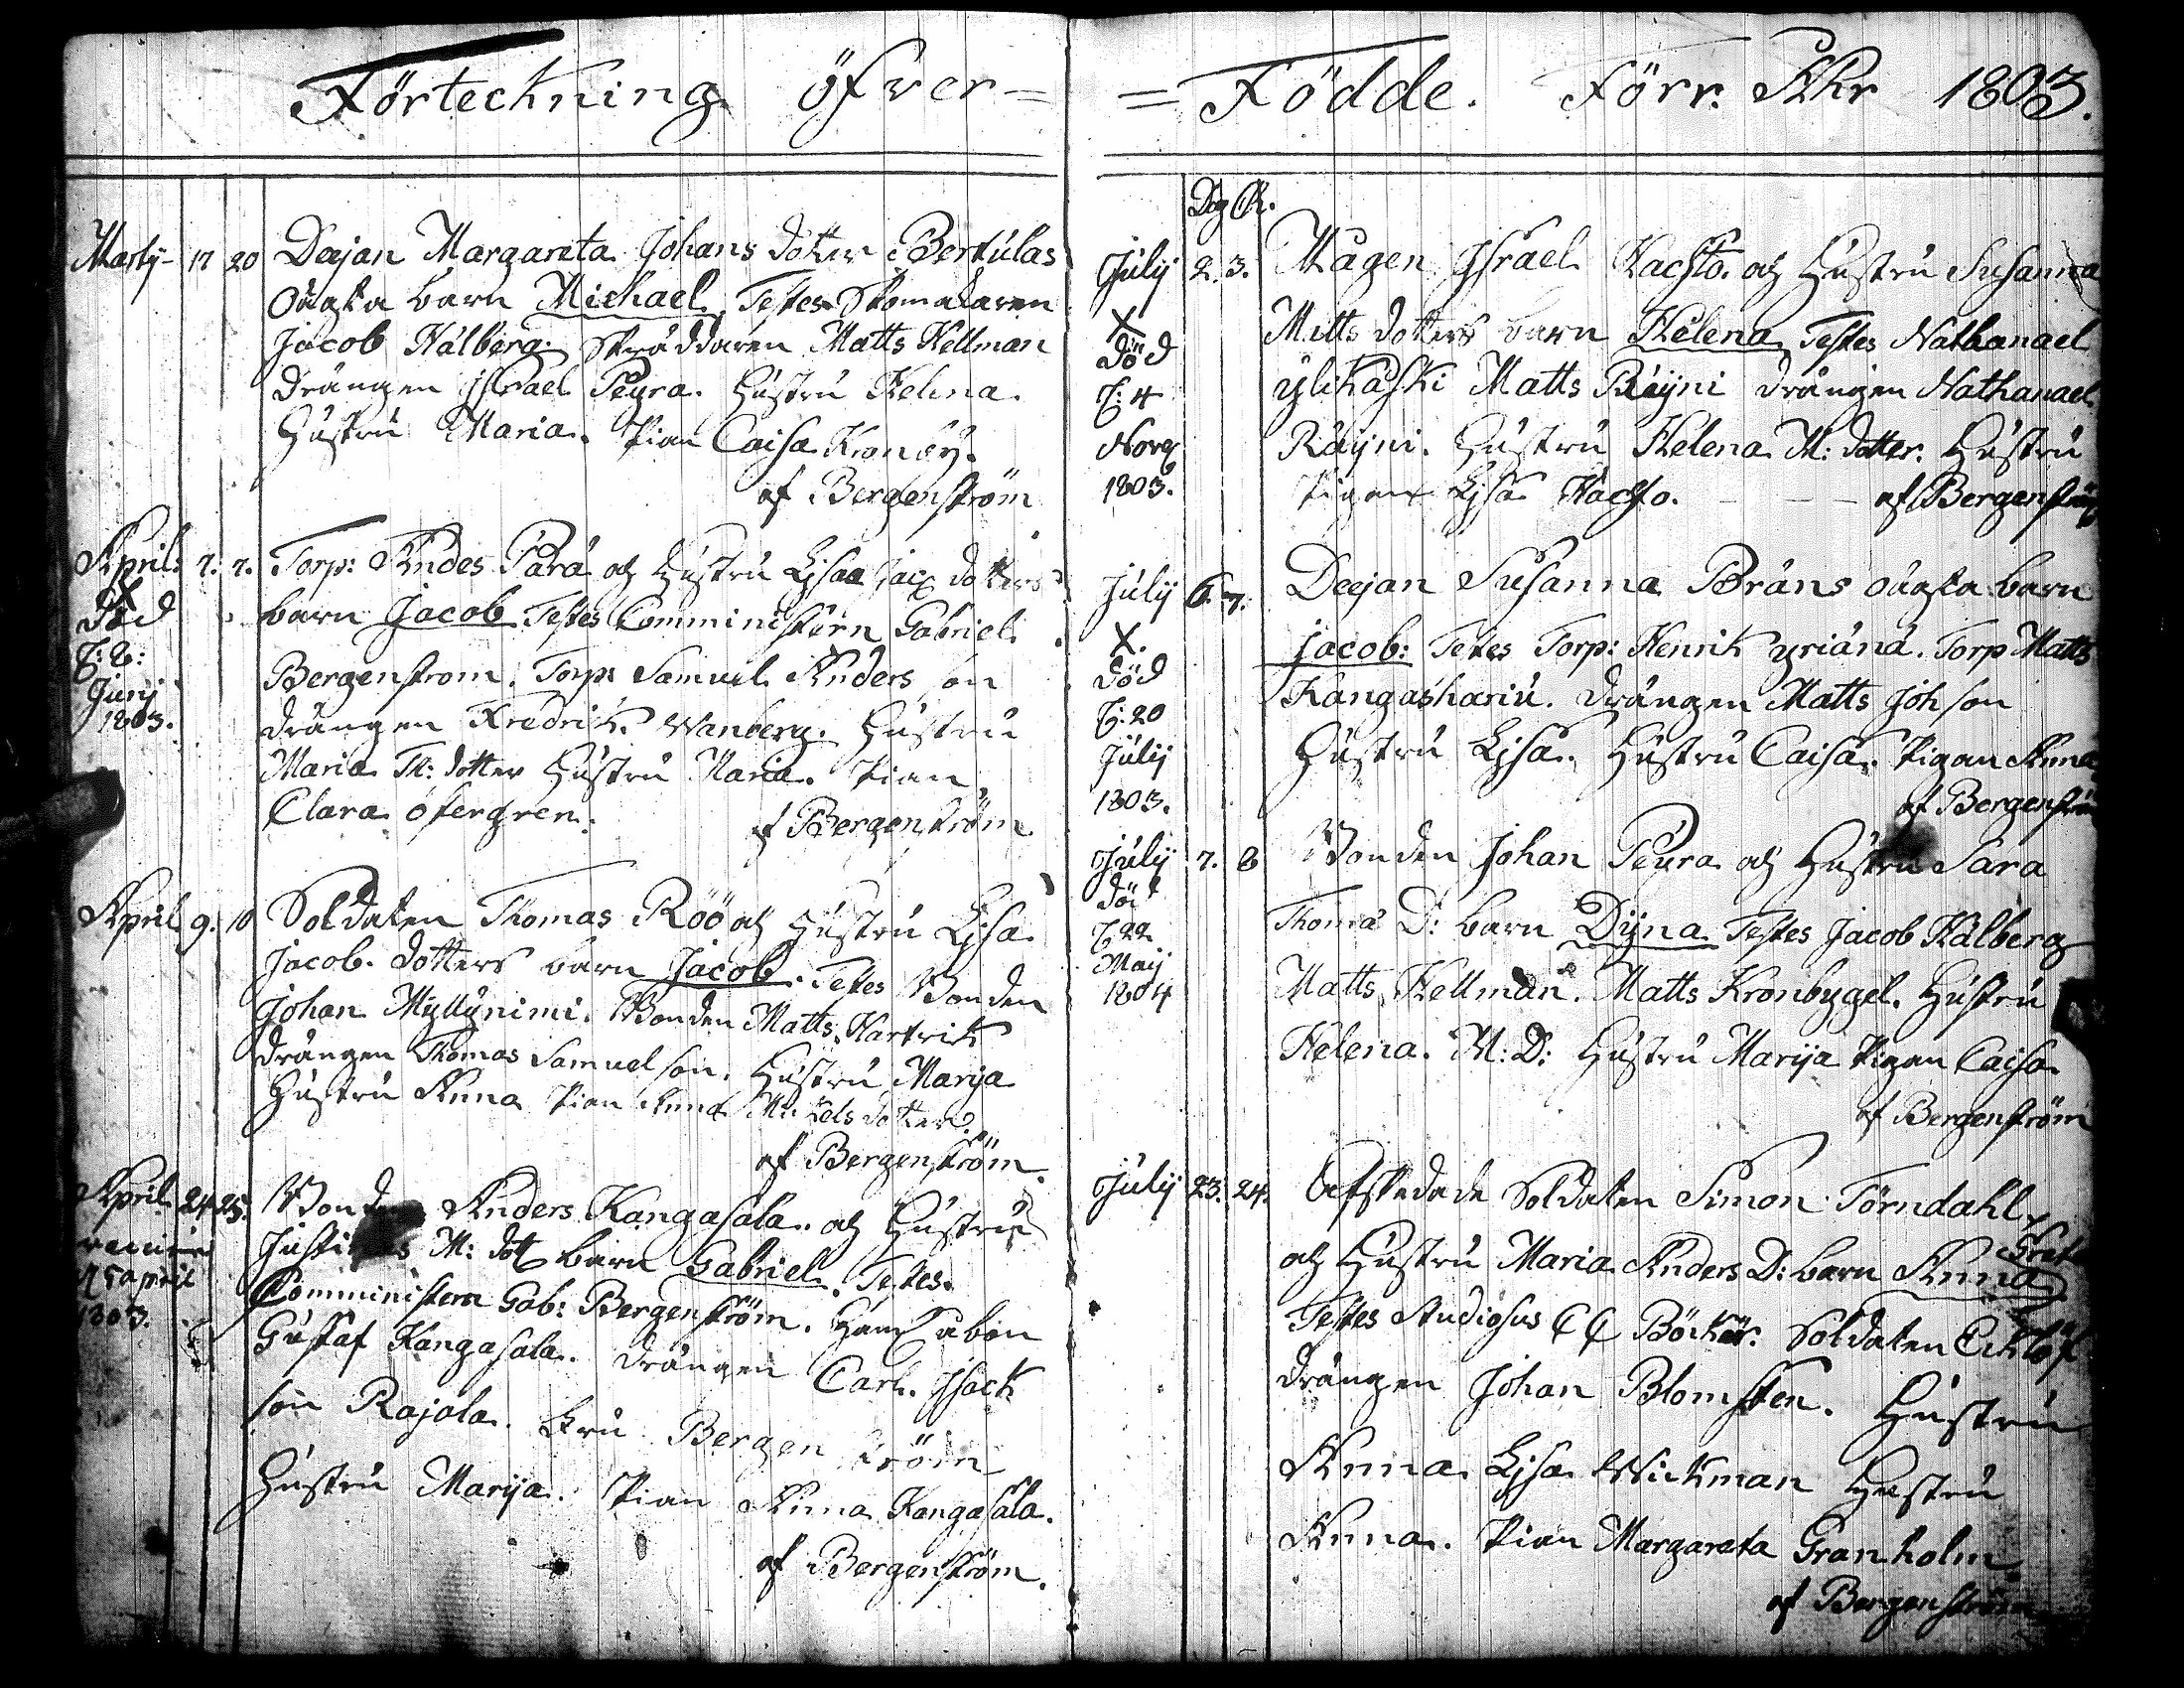 Förteckning öfver=
Marty- 17 20 Deijan Margareta Johans dotter Bertulas
oägta barn Michael. Testes Skomakaren
Jacob Kålberg. Skräddaren Matts Hellman
Drängen Jsrael Peura. Hustru Helena.
Hustru Maria. Pian Caisa Kronbÿ.
af Bergenström
April: 7. 7. Torp: Andes Para och Hustru Lisa Jac dotters
X
död
barn Jacob Testes Comministern Gabriel
d: 8:
Junij
1803.
Bergenstrom. Torp: Samuel Anders son
Drängen Fredrik Wanberg. Hustru
Maria M: dotter Hustru Maria. Pian
Clara öfergren.
af Bergenström
April 9. 10 Soldaten Thomas Röö och Hustru Lisa
Jacob dotters barn Jacob. Testes Bonden
Johan Myllÿnimi. Bonden Matts Hartrik
Drängen Thomas Samuel son. Hustru Marija
Hustru Anna Pian Anna Mickels dotter.
af Bergenström
April 24 25. Bonden Anders Kangasala. och Hustru
M: dott barn Gabriel. Testes.
april
1803.
Comministern Gab: Bergenström.
Gustaf Kangasala. Drängen Carl Jsack
son Rajala. Fru Bergenström
Hustru Marija. Pian Anna Kangasala.
af Bergenström.
=Födde. Förr. Åhr 1803.
Dag
Julij 2. 3. Mågen Jsrael Hachto. och Hustru Susanna
X
död
d: 4
Nov
1803.
Matts dotters barn Helena Testes Nathanael
ÿlikaski Matts Räijni Drängen Nathanael
Räijni. Hustru Helena M: dotter. Hustru
Pigan Lisa Hachto. - - - af Bergenström
Julij 6. 7. Deijan Susanna Bräns oägta barn
X.
död
d: 20
Julij
1803.
Jacob: Testes Torp: Henrik yriänä. Torp Matts
Kangasharju. Drängen Matts Joh son
Hustru Lisa. Hustru Caisa. Pigan Anna
af Bergenström
Julij 7. 8 Bonden Johan Peura och Hustru Sara
död
d 22
Maij
1804
Thomæ D: barn Dÿna Testes Jacob Kålberg
Matts Hellman. Matts Kronbygel. Hustru
Helena. M: D: Hustru Marija Pigan Caisa
af Bergenström
Julij 23. 24. Afskedade Soldaten Simon Törndahl
och Hustru Maria Anders D: barn Anna Greta
Testes Studiosus C G Böcker. Soldaten Eklöf
Drängen Johan Blomsten. Hustru
Anna Lisa Wickman Hustru
Anna. Pian Margareta Granholm
af Bergenström